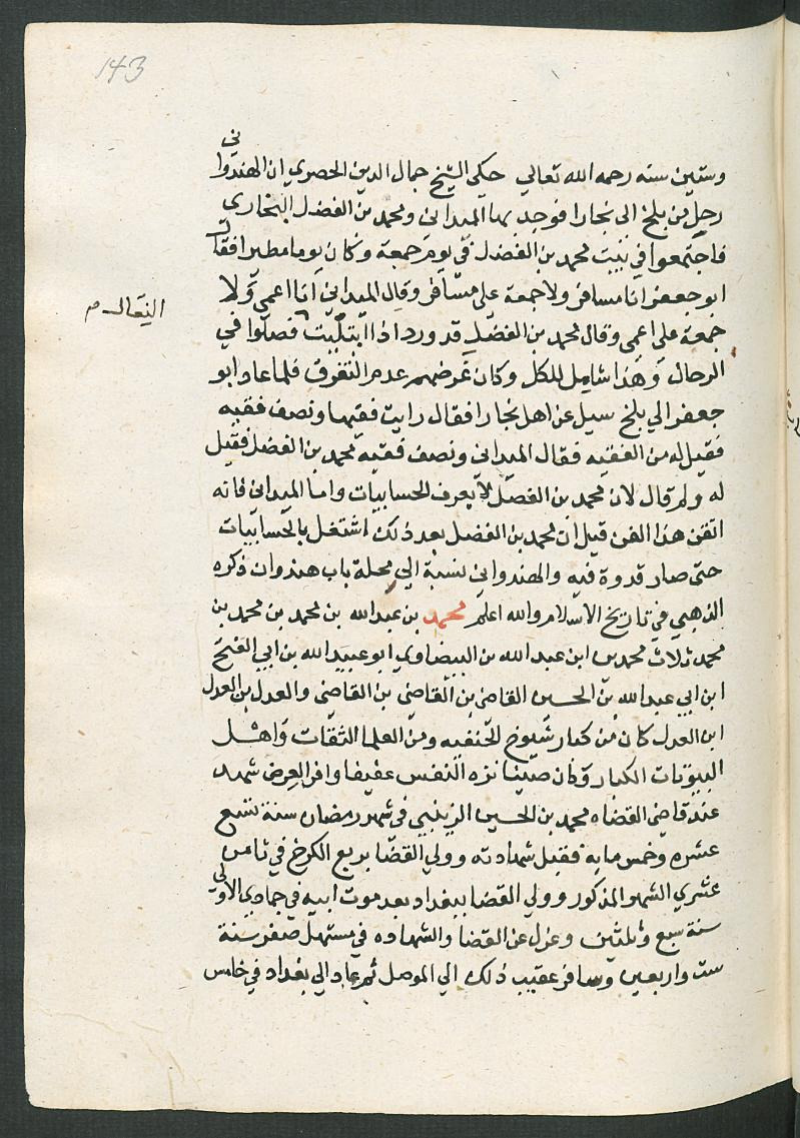 143
وستين سنه رحمه الله تعالي حكي الشيخ جمال الدين الحصوري ان الهندواني
رحل من بلخ الى بخارا فوجد بها الميداني ومحمد بن الفضل البخاري
فاجتمعوا في بيت محمد بن الفضل في يوم جمعة وكان يوما مطيرا فقال
ابو جعفر انا مسافر ولا جمعة على مسافر وقال الميداني انا اعمى ولا
النعال م
جمعة على اعمى وقال محمد بن الفضل قد ورد اذا ابتلت فصلوا في
الرحال وهذا شامل للكل وكان غرضهم عدم التفرق فلما عاد ابو
جعفر الي بلخ سيل عن اهل بخارا فقال رايت فقيها ونصف فقيه
فقيل له من الفقيه فقال الميداني ونصف فقيه محمد بن الفضل فقيل
له ولم قال لان محمد بن الفضل لا يعرف الحسابيات واما الميداني فانه
اتقن هذا الفن قيل ان محمد بن الفضل بعد ذلك اشتغل بالحسابيات
حتى صار قدوة فيه والهندواني نسبة الي محلة باب هندوان ذكره
الذهبي في تاريخ الاسلام والله اعلم محمد بن عبد الله بن محمد بن محمد بن
محمد ثلاث محمدين ابن عبد الله بن البيضاوي ابو عبيد الله بن ابي الفتح
ابن ابي عبد الله بن الحسين القاضي بن القاضي بن القاضي والعدل بن العدل
ابن العدل كان من كبار شيوخ الحنفيه ومن العلما الثقات واهل
البيوتات الكبار وكان صينا نزه النفس عفيفا وافر العرض شهد
عند قاضي القضاه محمد بن الحسين الزينبي في شهر رمضان سنة تسع
عشره وخمس مايه فقبل شهادته وولي القضا بربع الكرخ في ثامن
عشري الشهر المذكور وولي القضا ببغداد بعد موت ابيه في جمادي الاولي
سنة سبع وثلثين وعزل عن القضا والشهاده في مستهل صفر سنة
ست واربعين وسافر عقيب ذلك الي الموصل ثم عاد الي بغداد في خامس